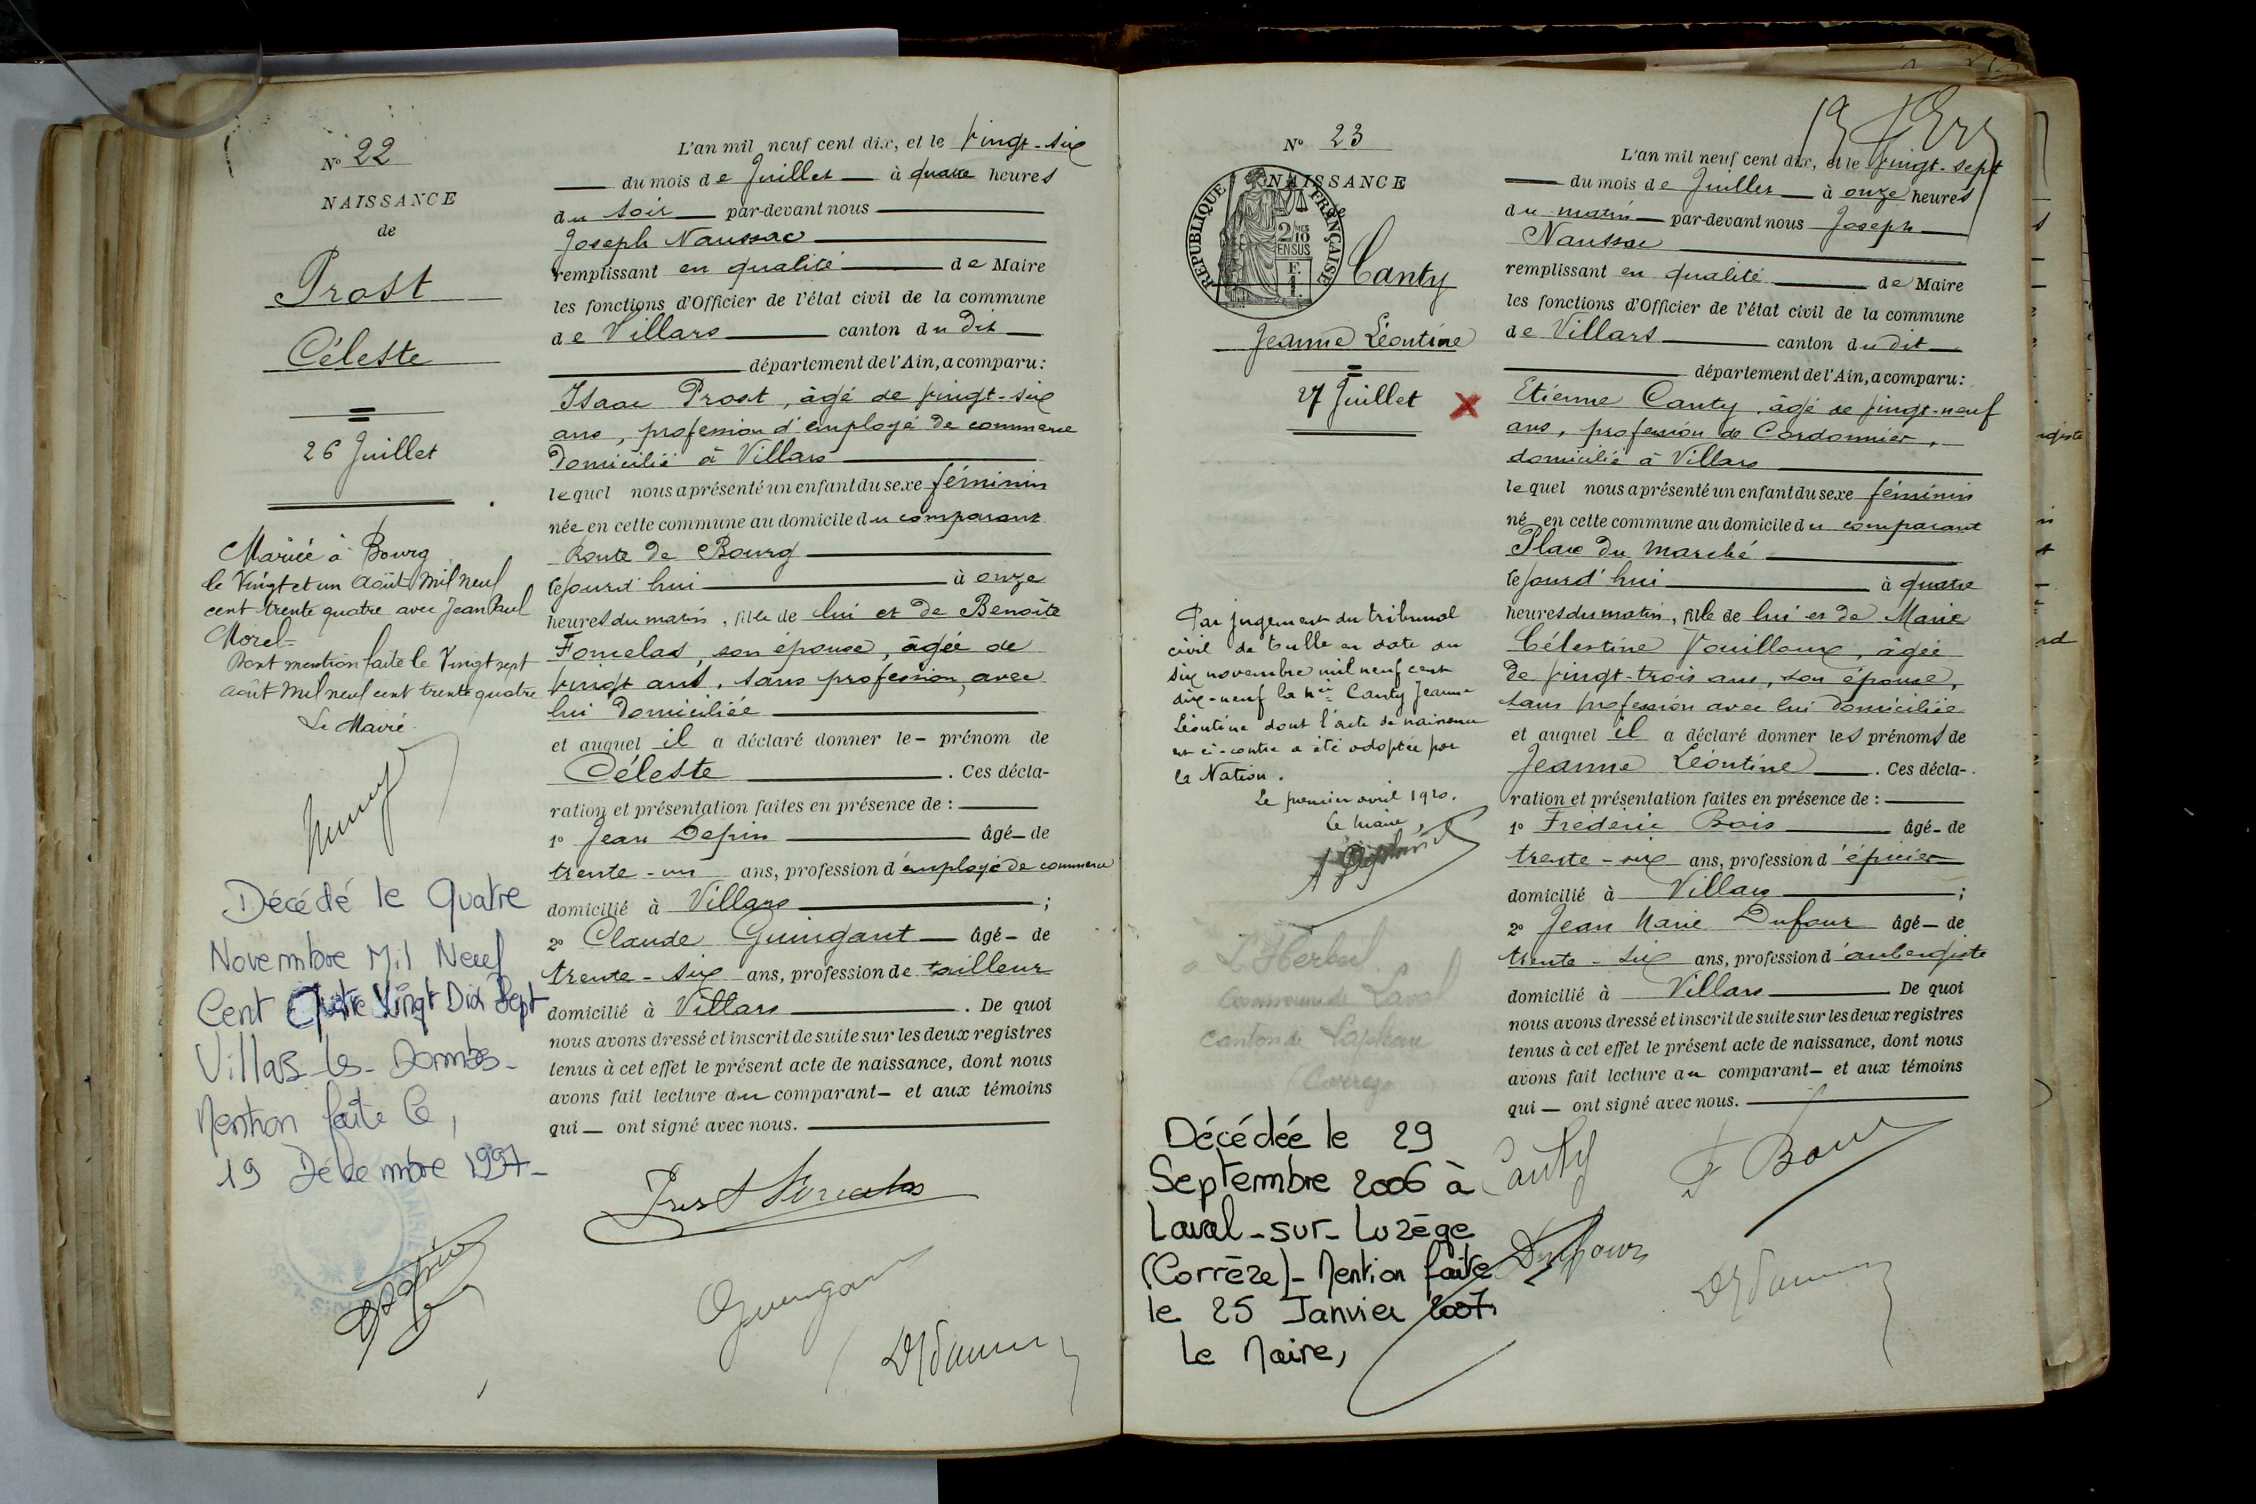 N° 22
NAISSANCE
de
Prost
Céleste
26 Juillet
Mariée à Bourg
le Vingt et un Août mil neuf
cent trente quatre avec Jean Paul
Morel
Dont mention faite le Vingt sept
août mil neuf cent trente quatre
Le Maire
Décédé le Quatre
Novembre Mil Neuf
Cent Quatre Vingt Dix Sept
Villars les Dombes
Mention faite le,
19 Décembre 1997
L'an mil neuf cent dix, et le vingt-six
du mois de Juillet à quatre heures
du soir par-devant nous
Joseph Naussac
remplissant en qualité de Maire
les fonctions d'Officier de l'état civil de la commune
de Villars canton du dit
département de l'Ain, a comparu:
Isaac Prost, âgé de vingt-six
ans, profession d'employé de commerce
domicilié à Villars
lequel nous a présenté un enfant du sexe féminin
née en cette commune au domicile du comparant
Route de Bourg
cejourd'hui à onze
heures du matin, fille de lui et de Benoîte
Fomelas, son épouse, âgée de
vingt ans, sans profession, avec
lui domiciliée
et auquel il a déclaré donner le prénom de
Céleste. Ces décla-
ration et présentation faites en présence de :
1° Jean Depin âgé de
trente-un ans, profession d'employé de commerce
domicilié à Villars ;
2° Claude Guingant âgé de
trente-six ans, profession de tailleur
domicilié à Villars. De quoi
nous avons dressé et inscrit de suite sur les deux registres
tenus à cet effet le présent acte de naissance, dont nous
avons fait lecture au comparant et aux témoins
qui ont signé avec nous.
N° 23
NAISSANCE
de
REPUBLIQUE FRANÇAISE
2/10 EN SUS
Canty
Jeanne Léontine
27 Juillet
Par jugement du tribunal
civil de Tulle en date du
six novembre mil neuf cent
dix-neuf la née Canty Jeanne
Léontine dont l'acte de naissance
est ci-contre a été adoptée par
la Nation.
Le premier avril 1920.
Le Maire,
L'Herbeil
Commune de Laval
Canton de Lapleau
Corrèze
Décédée le 29
Septembre 2006 à
Laval-sur-Luzège
(Corrèze)- Mention faite
le 25 Janvier 2007
Le Maire,
L'an mil neuf cent dix, et le vingt-sept
du mois de Juillet à onze heures
du matin par-devant nous Joseph
Naussac
remplissant en qualité de Maire
les fonctions d'Officier de l'état civil de la commune
de Villars canton du dit
département de l'Ain, a comparu:
Etienne Canty, âgé de vingt-neuf
ans, profession de Cordonnier,
domicilié à Villars
lequel nous a présenté un enfant du sexe féminin
né en cette commune au domicile du comparant
Place du Marché
cejourd'hui à quatre
heures du matin, fille de lui et de Marie
Célestine Vouilloux, âgée
de vingt-trois ans, son épouse,
sans profession avec lui domiciliée
et auquel il a déclaré donner les prénoms de
Jeanne Léontine. Ces décla-
ration et présentation faites en présence de :
1° Frédéric Bois âgé de
trente-six ans, profession d'épicier
domicilié à Villars ;
2° Jean Marie Dufour âgé de
trente-six ans, profession d'aubergiste
domicilié à Villars De quoi
nous avons dressé et inscrit de suite sur les deux registres
tenus à cet effet le présent acte de naissance, dont nous
avons fait lecture au comparant et aux témoins
qui ont signé avec nous.
Canty
Dufour